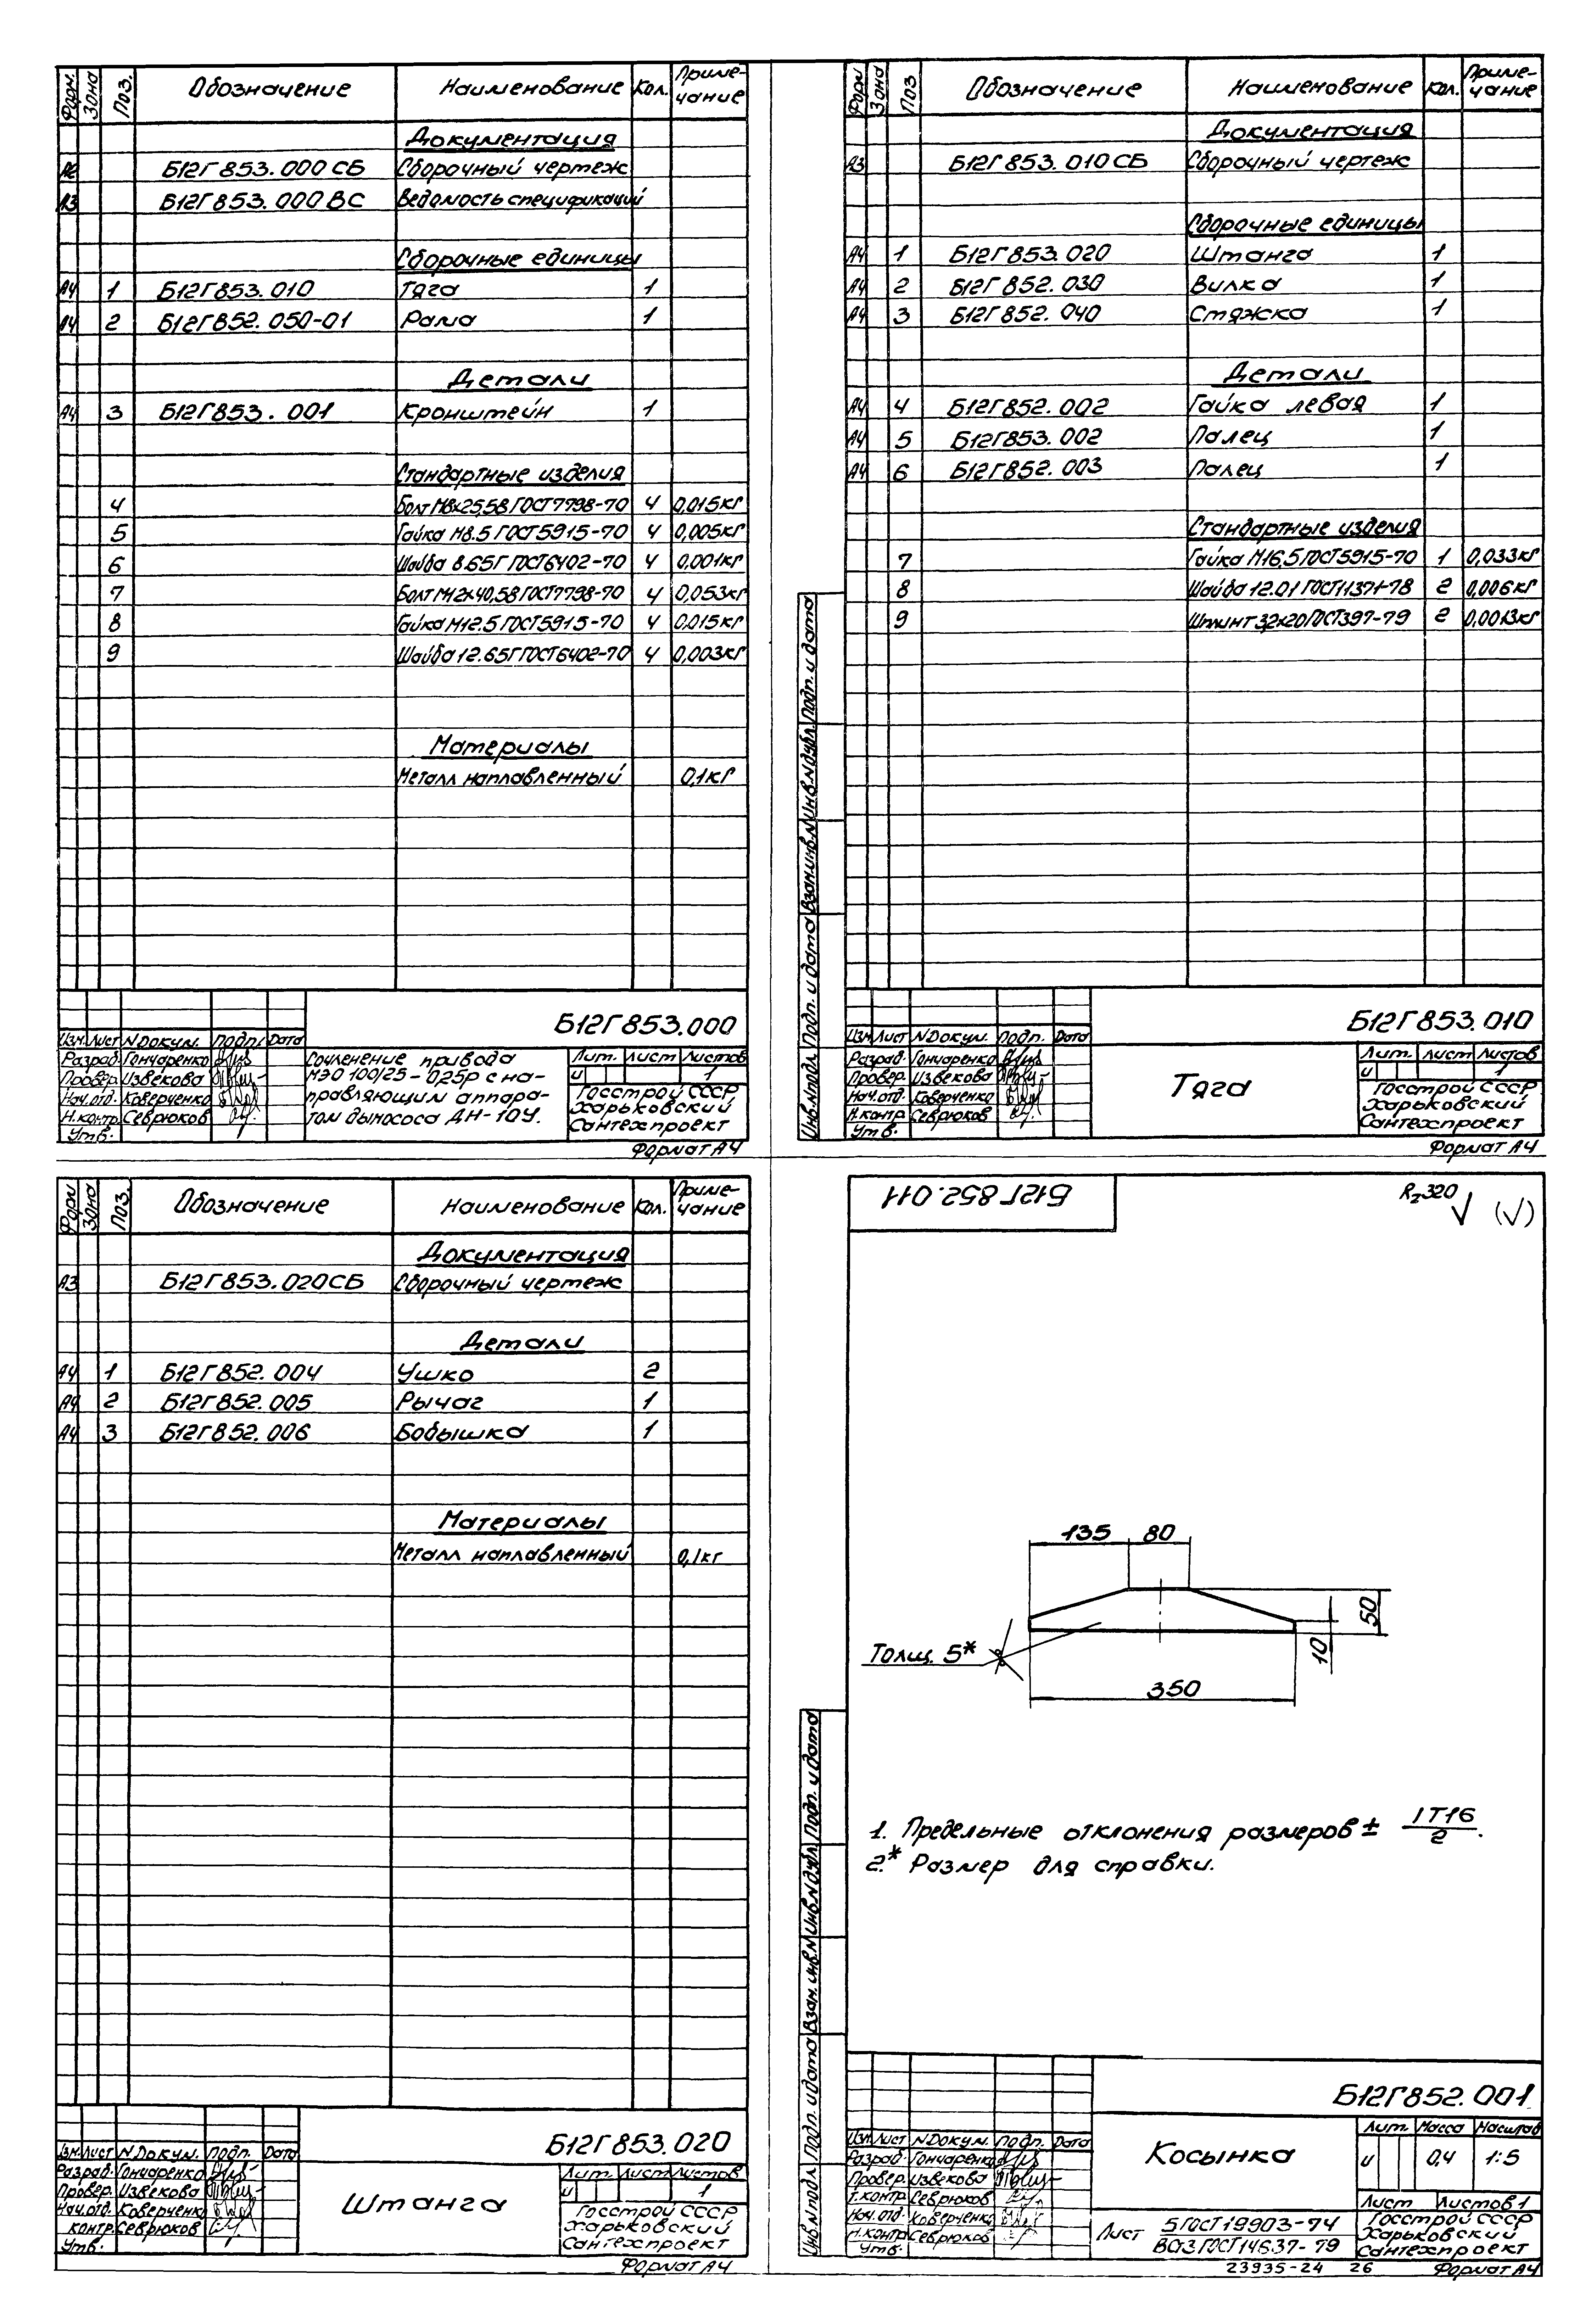 Форм. Зона Поз. Обозначение Наименование Кол. Приме-чание
Документация
А2 Б12Г853.000 СБ Сборочный чертеж
А3 Б12Г853.000 ВС Ведомость спецификаций
Сборочные единицы
А4 1 Б12Г853.010 Тяга 1
А4 2 Б12Г852.050-01 Рама 1
Детали
А4 3 Б12Г853.001 Кронштейн 1
Стандартные изделия
4 Болт М8х25,58 ГОСТ7798-70 4 0,015кг
5 Гайка М8.5 ГОСТ5915-70 4 0,005кг
6 Шайба 8.65Г ГОСТ6402-70 4 0,001кг
7 Болт М12х40,58 ГОСТ7798-70 4 0,053кг
8 Гайка М12.5 ГОСТ5915-70 4 0,015кг
9 Шайба 12.65Г ГОСТ6402-70 4 0,003кг
Материалы
Металл наплавленный 0,1кг
Б12Г853.000
Изм Лист N Докум. Подп. Дата
Разраб. Гончаренко
Провер. Извекова
Нач.отд. Коверченко
Н.контр. Севрюков
Утв.
Сочленение привода
МЭО 100/25-0,25Р с на-
правляющим аппара-
том дымососа ДН-10У.
Лит. Лист Листов
и 1
Госстрой СССР
Харьковский
Сантехпроект
Формат А4
Форм Зона Поз Обозначение Наименование Кол. Приме-чание
Документация
А3 Б12Г853.010 СБ Сборочный чертеж
Сборочные единицы
А4 1 Б12Г853.020 Штанга 1
А4 2 Б12Г852.030 Вилка 1
А4 3 Б12Г852.040 Стяжка 1
Детали
А4 4 Б12Г852.002 Гайка левая 1
А4 5 Б12Г853.002 Палец 1
А4 6 Б12Г852.003 Палец 1
Стандартные изделия
7 Гайка М16,5 ГОСТ5915-70 1 0,033кг
8 Шайба 12.01 ГОСТ11371-78 2 0,006кг
9 Шплинт 3,2х20 ГОСТ397-79 2 0,0013кг
Инв.N подл. Подп. и дата Взам.инв.N Инв.N дубл. Подп. и дата
Б12Г853.010
Изм Лист N Докум. Подп. Дата
Разраб. Гончаренко
Провер. Извекова
Нач.отд. Коверченко
Н.контр Севрюков
Утв.
Тяга
Лит. Лист Листов
и 1
Госстрой СССР
Харьковский
Сантехпроект
Формат А4
Форм Зона Поз. Обозначение Наименование Кол. Приме-чание
Документация
А3 Б12Г853.020СБ Сборочный чертеж
Детали
А4 1 Б12Г852.004 Ушко 2
А4 2 Б12Г852.005 Рычаг 1
А4 3 Б12Г852.006 Бобышка 1
Материалы
Металл наплавленный 0,1кг
Б12Г853.020
Изм Лист N Докум. Подп. Дата
Разраб. Гончаренко
Провер. Извекова
Нач.отд. Коверченко
контр. Севрюков
Утв.
Штанга
Лит. Лист Листов
и 1
Госстрой СССР
Харьковский
Сантехпроект
Формат А4
Б12Г852.011
Rz320 √ (√)
135 80
50
10
Толщ. 5*
350
1. Предельные отклонения размеров ± IT16/2.
2.* Размер для справки.
Инв.N подл. Подп. и дата Взам. инв.N Инв.N дубл. Подп. и дата
Б12Г852.001
Изм Лист N Докум. Подп. Дата
Разраб. Гончаренко
Провер. Извекова
Т.контр. Севрюков
Нач.отд. Коверченко
Н.контр Севрюков
Утв.
Косынка
Лит. Масса Масштаб
и 0,4 1:5
Лист Листов 1
Лист 5 ГОСТ 19903-74
ВСт3 ГОСТ 14637-79
Госстрой СССР
Харьковский
Сантехпроект
23935-24 26 Формат А4